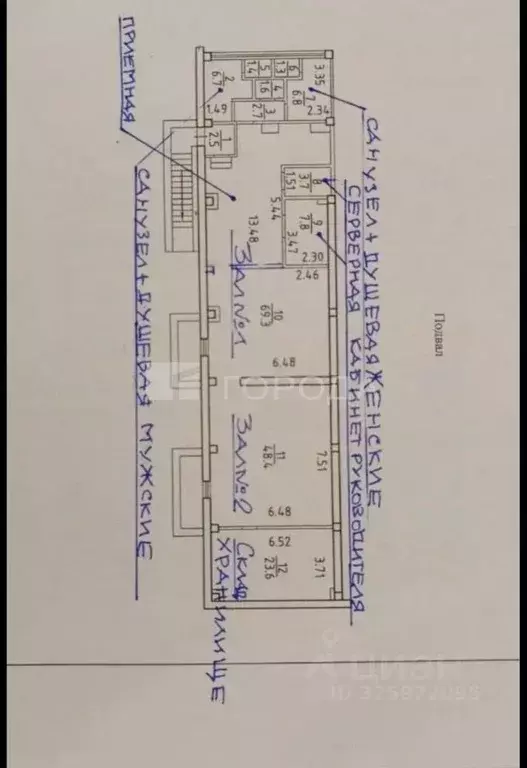 Подвал
ПРИЕМНАЯ
САНУЗЕЛ+ДУШЕВАЯ МУЖСКИЕ
САНУЗЕЛ+ДУШЕВАЯ ЖЕНСКИЕ
СЕРВЕРНАЯ
КАБИНЕТ РУКОВОДИТЕЛЯ
ЗАЛ №1
ЗАЛ №2
СКЛАД
ХРАНИЛИЩЕ
2
6.7
1.49
5
1.4
6
1.3
4
1.6
3
2.7
7
6.8
3.35
2.34
1
2.5
8
3.7
1.51
9
7.8
3.47
2.30
5.44
13.48
2.46
10
69.3
6.48
11
48.4
7.51
6.48
6.52
12
23.6
3.71
циан